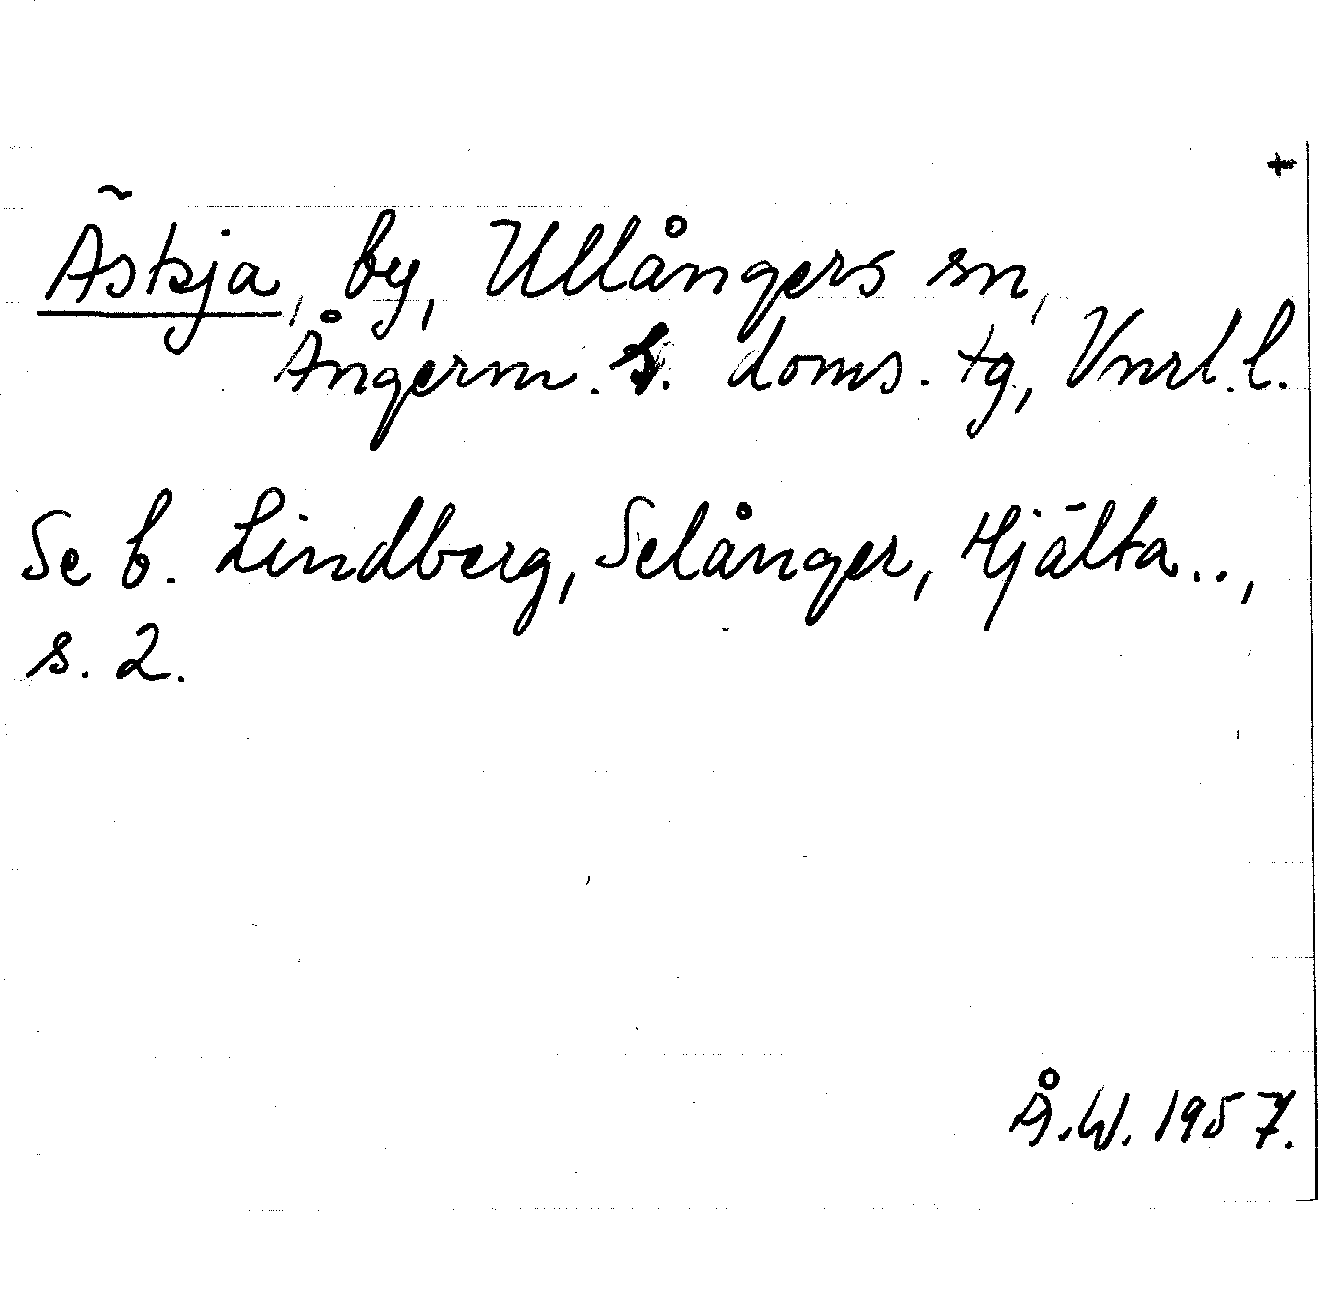 +
Äskja, by, Ullångers sn,
Ångerm. S. doms. tg, Vnrl. l.
Se b. Lindberg, Selånger, Hjälta..,
s. 2.
Å.W. 1957.